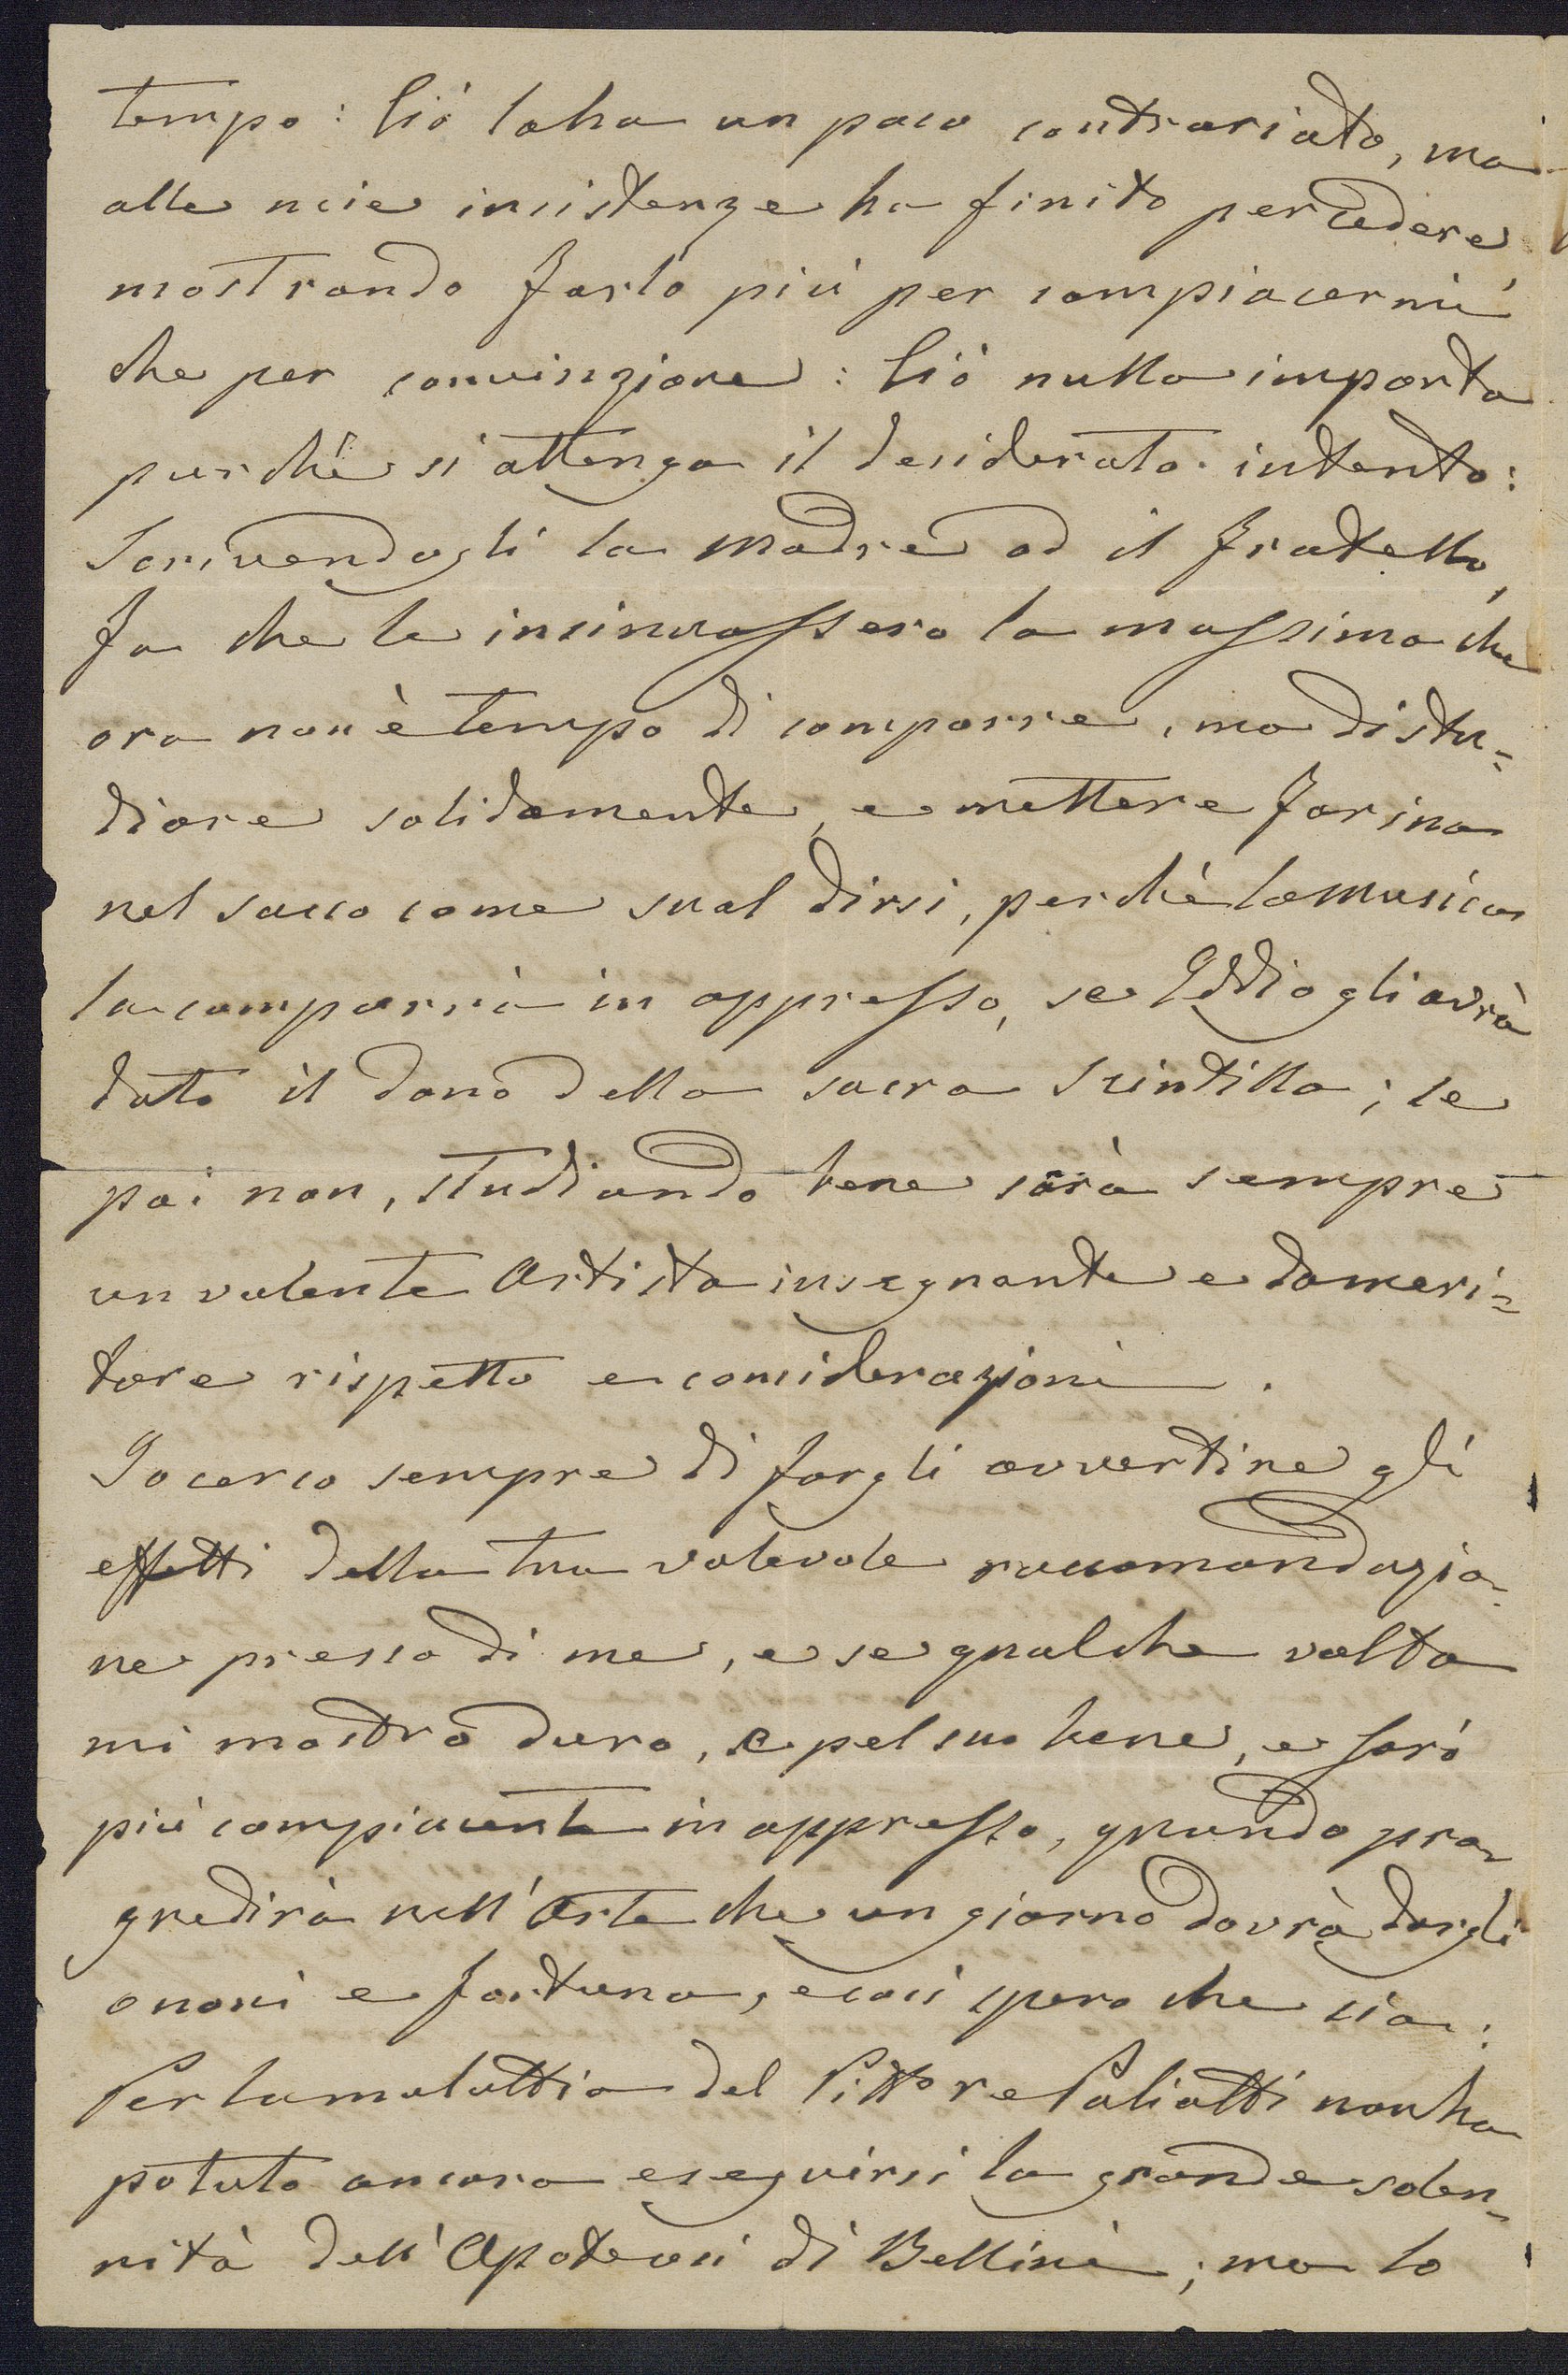 tempo: Ciò lo ha un poco contrariato, ma
alle mie insistenze ha finito per cedere
mostrando farlo più per compiacermi
che per convinzione: Ciò nulla importa
purchè si ottenga il desiderato intento:
Scrivendogli la Madre od il fratello,
fa che le insinuassero la massima che
ora non è tempo di comporre, ma di stu=
diare solidamente, e mettere farina
nel sacco come suol dirsi, perchè la musica
la comporrà in appresso, se Iddio gli avrà
dato il dono della sacra scintilla; se
poi non, studiando bene sarà sempre
un valente Artista insegnante e da meri=
tare rispetto e considerazioni.
Io cerco sempre di fargli avvertire gli
effetti della tua valevole raccomandazio=
ne presso di me, e se qualche volta
mi mostro duro, è pel suo bene, e sarò
più compiacente in appresso, quando pro=
gredirà nell'Arte che un giorno dovrà dargli
onori e fortuna, e così spero che sia:
Per la malattia del Pittore Paliotti non ha
potuto ancora eseguirsi la grande solen=
nità dell'Apoteosi di Bellini; ma lo